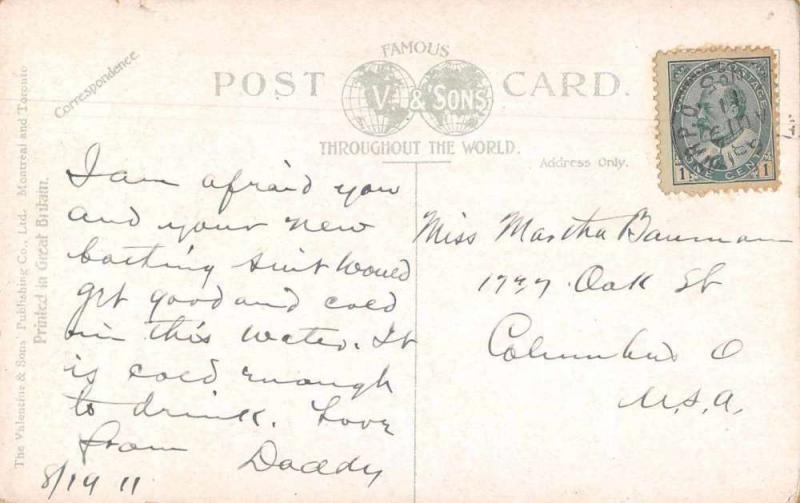 FAMOUS
POST CARD.
V. & SONS
THROUGHOUT THE WORLD.
Correspondence.
Address Only.
The Valentine & Sons' Publishing Co., Ltd. Montreal and Toronto
Printed in Great Britain.
CANADA POSTAGE
1 ONE CENT 1
I am afraid you
and your new
bathing suit would
get good and cold
in this water. It
is cold enough
to drink. Love
from Daddy
8/19 11
Miss Martha Bauman
Oak St
Columbus O
U.S.A.